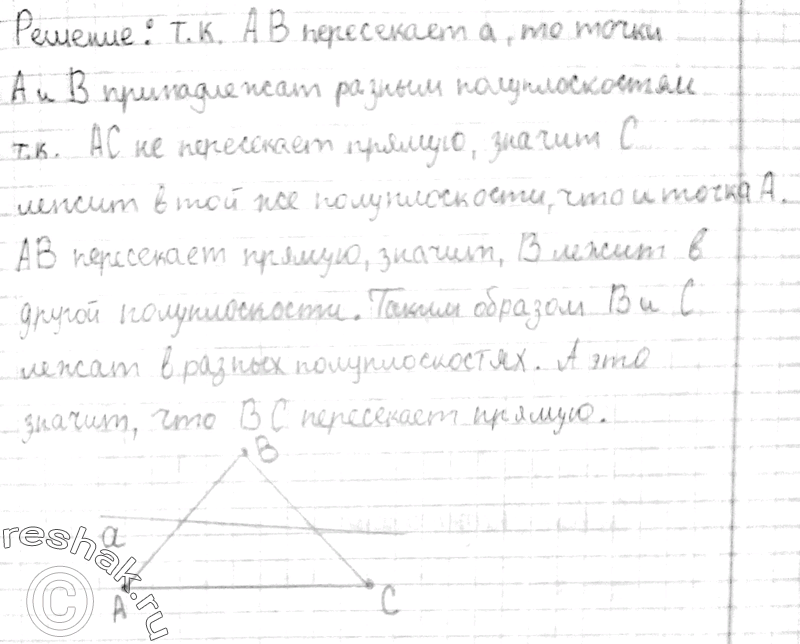 Решение: т.к. АВ пересекает а, то точки
А и В принадлежат разным полуплоскостям
т.к. АС не пересекает прямую, значит С
лежит в той же полуплоскости, что и точка А.
АВ пересекает прямую, значит, В лежит в
другой полуплоскости. Таким образом В и С
лежат в разных полуплоскостях. А это
значит, что ВС пересекает прямую.
В
а
А
С
reshak.ru
©